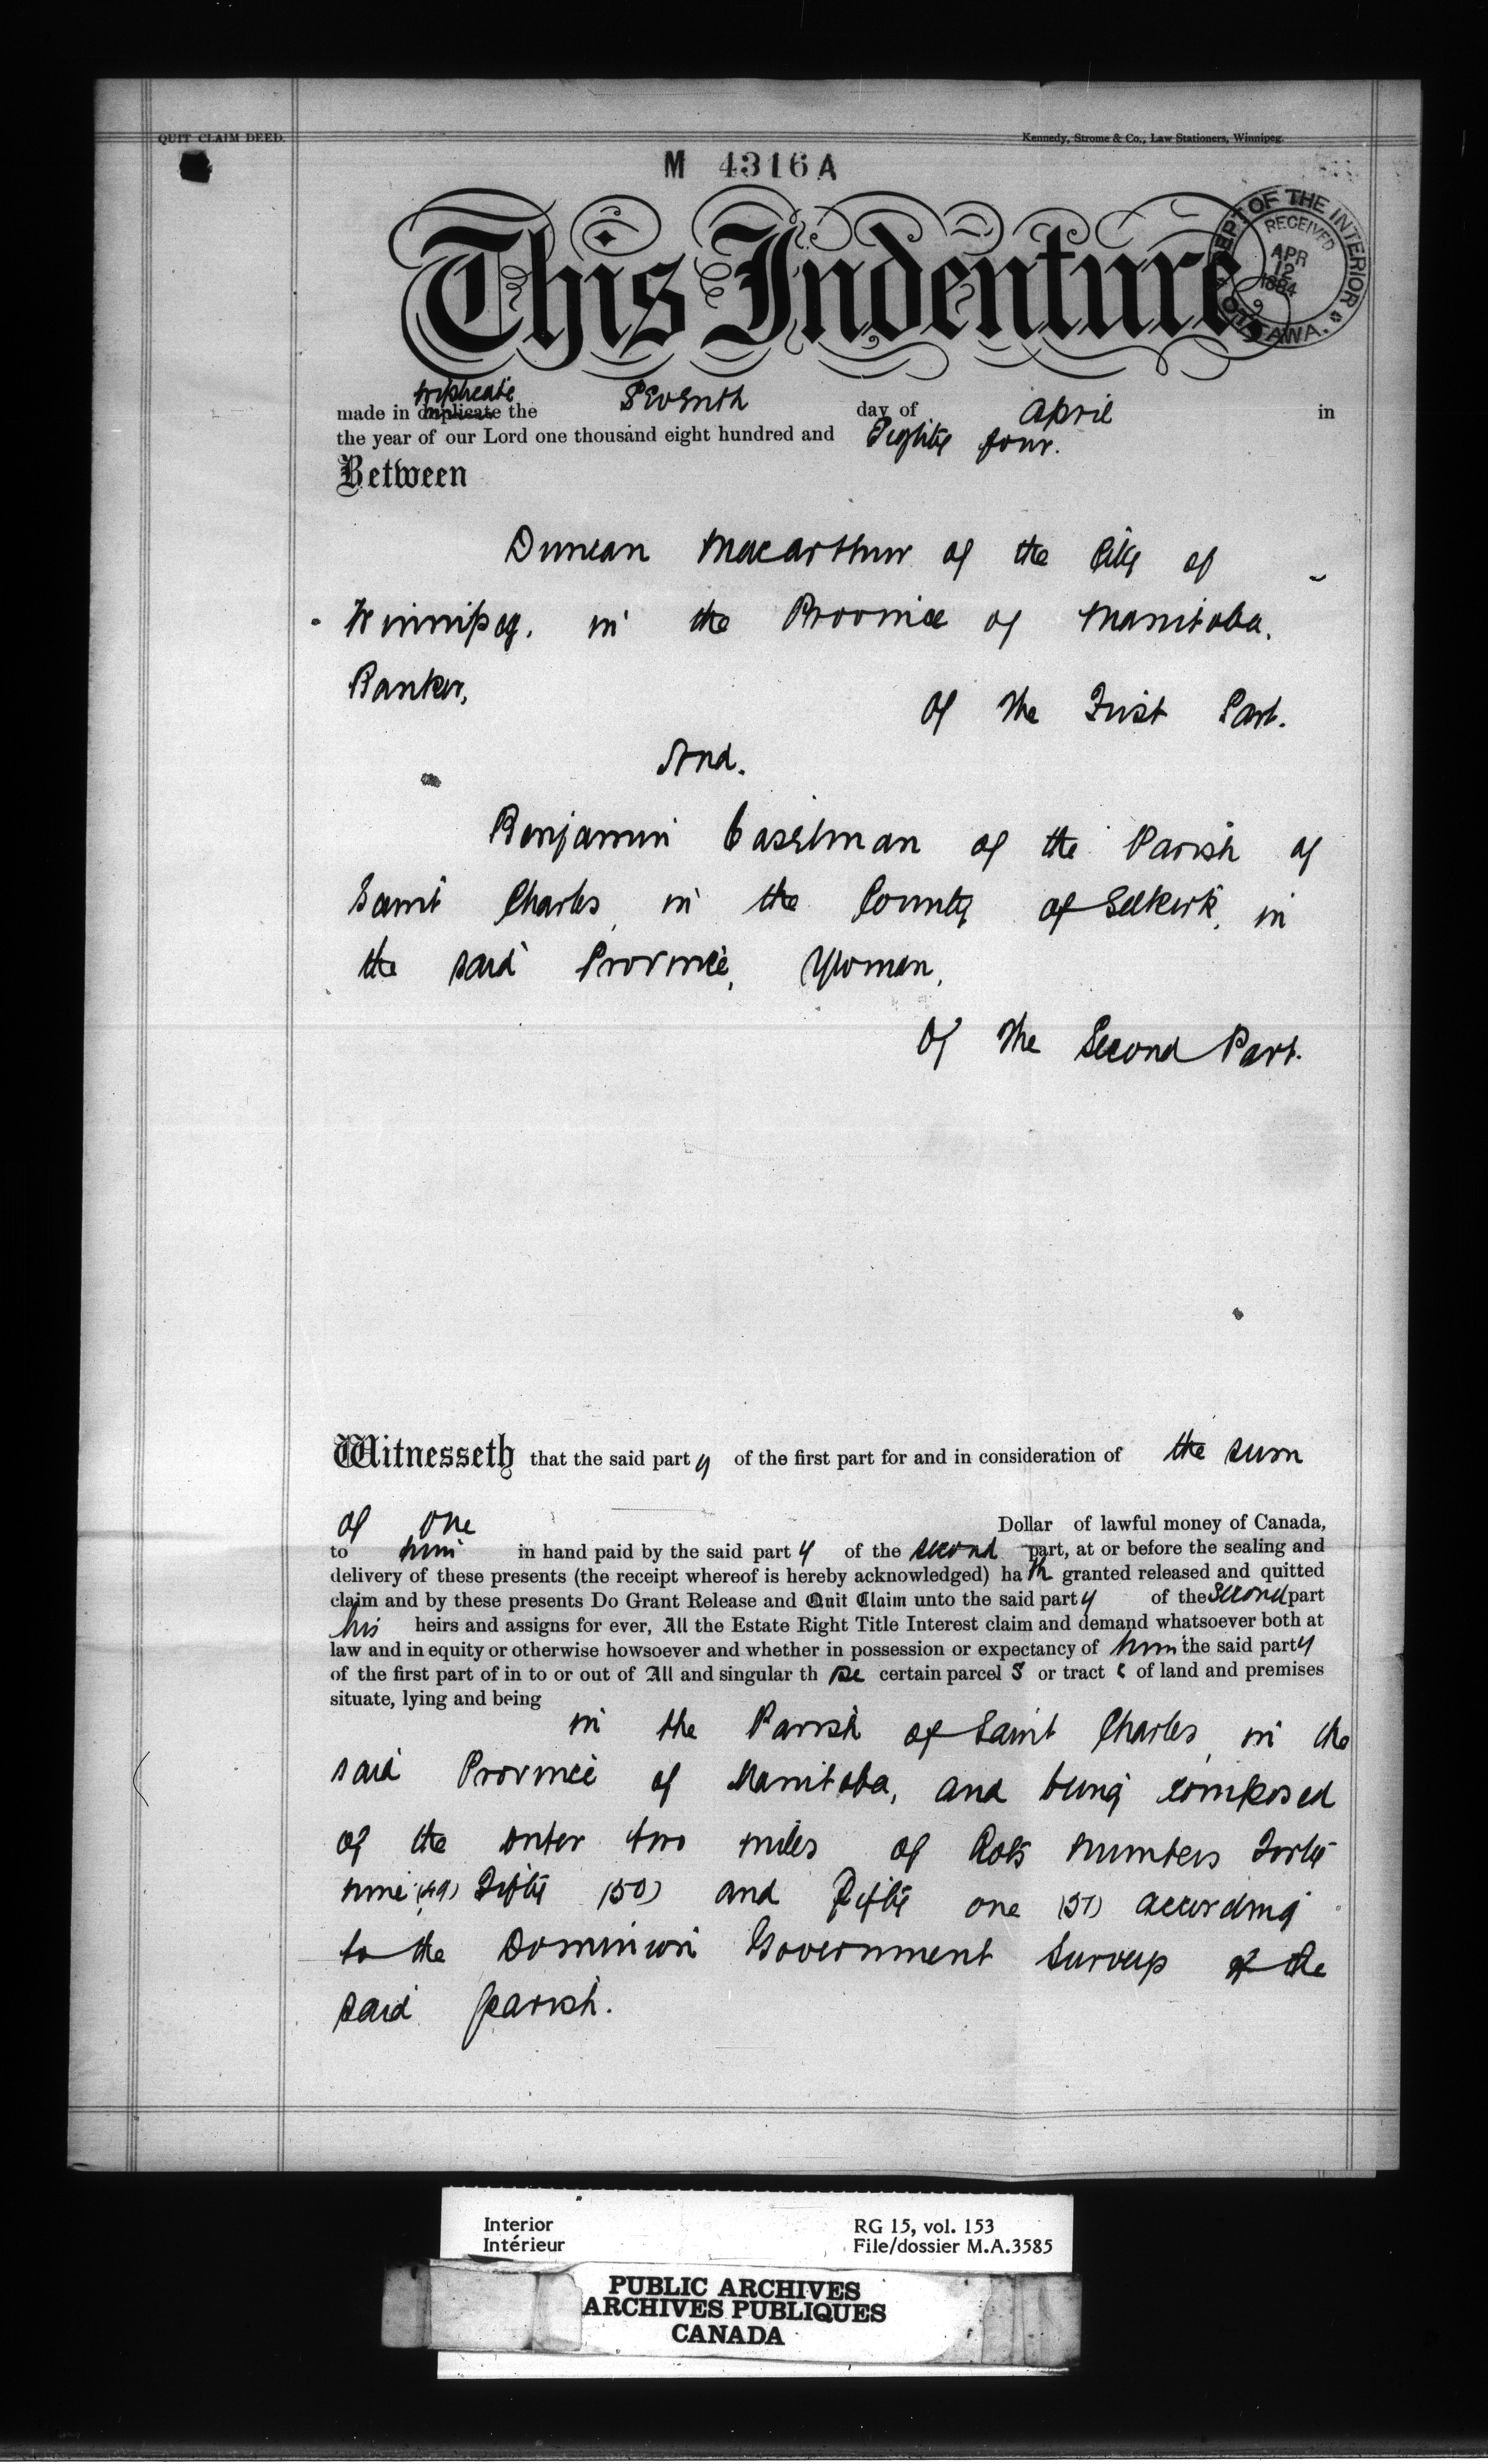 QUIT CLAIM DEED.
Kennedy, Strome & Co., Law Stationers, Winnipeg.
M 4316 A
This Indenture
DEPT OF THE INTERIOR
RECEIVED
APR
12
1884
OTTAWA.
triplicate
made in duplicate the Seventh day of April in
the year of our Lord one thousand eight hundred and Eighty four.
Between
Duncan Macarthur of the City of
Winnipeg, in the Province of Manitoba,
Banker,
Of the First Part.
And.
Benjamin Caselman of the Parish of
Saint Charles, in the County of Selkirk, in
the said Province, Yeoman,
Of the Second Part.
Witnesseth that the said party of the first part for and in consideration of the sum
of One Dollar of lawful money of Canada,
to him in hand paid by the said party of the second part, at or before the sealing and
delivery of these presents (the receipt whereof is hereby acknowledged) hath granted released and quitted
claim and by these presents Do Grant Release and Quit Claim unto the said party of the Second part
his heirs and assigns for ever, All the Estate Right Title Interest claim and demand whatsoever both at
law and in equity or otherwise howsoever and whether in possession or expectancy of him the said party
of the first part of in to or out of All and singular those certain parcels or tracts of land and premises
situate, lying and being
in the Parish of Saint Charles, in the
said Province of Manitoba, and being composed
of the outer two miles of Lots numbers Forty
nine (49) Fifty (50) and Fifty one (51) according
to the Dominion Government Survey of the
said parish.
Interior
Intérieur
RG 15, vol. 153
File/dossier M.A.3585
PUBLIC ARCHIVES
ARCHIVES PUBLIQUES
CANADA